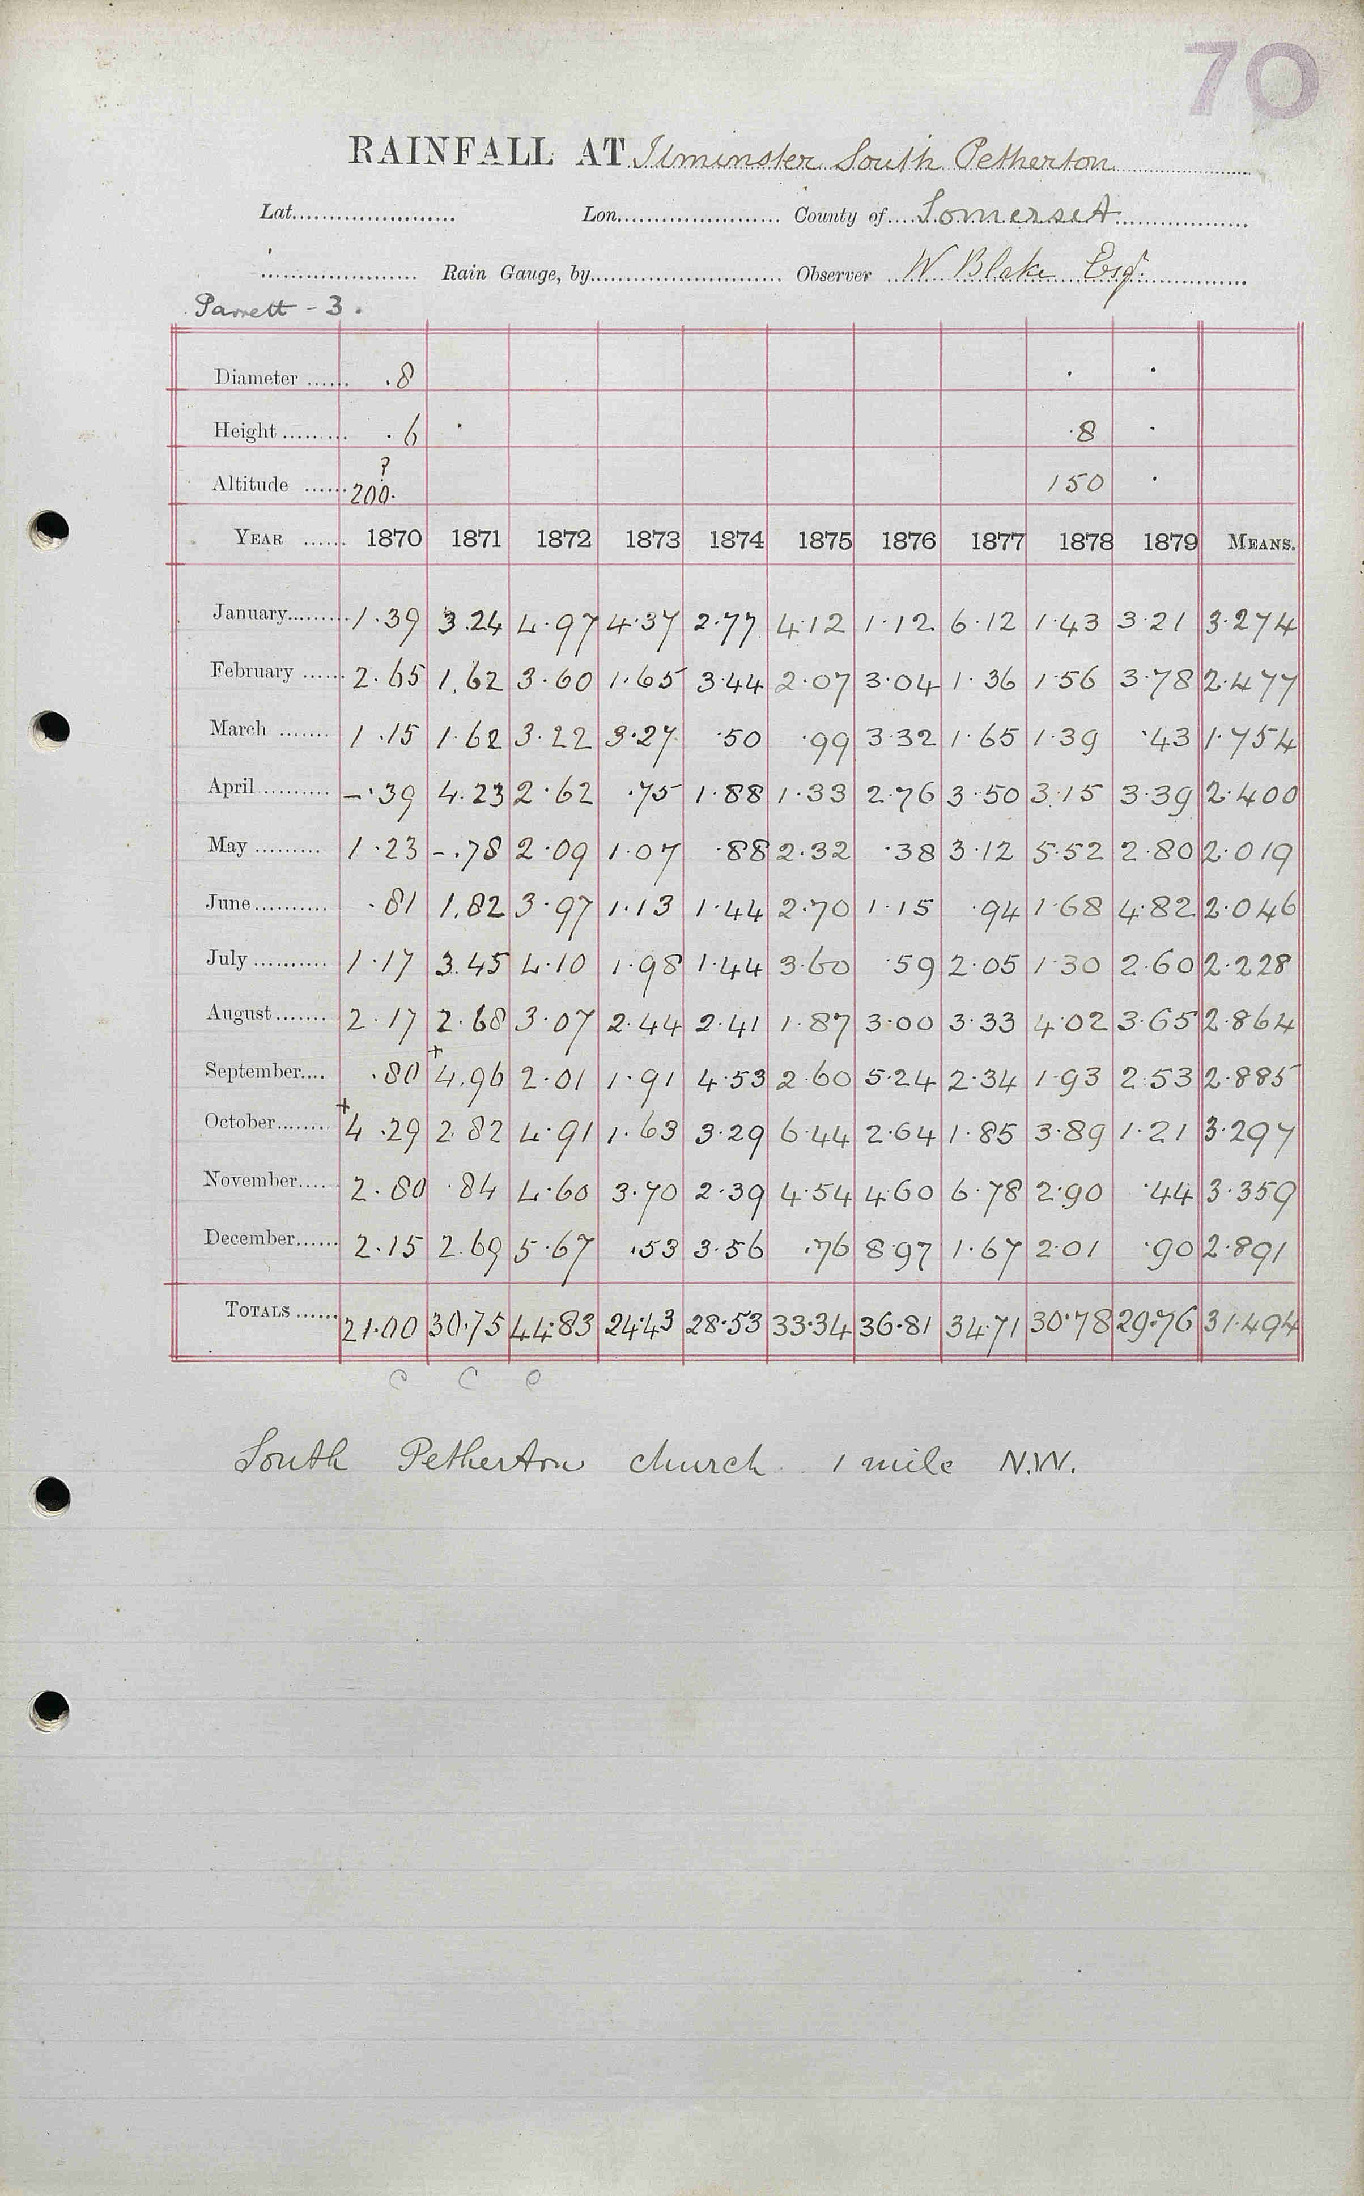 70
RAINFALL AT Ilminster South Petherton
Lat...................... Lon...................... County of.... Somerset
..................... Rain Gauge, by......................... Observer W Blake Esq.
Parrett - 3.
Diameter ...... .8
Height ......... .6 ·8
Altitude ...... ? 200. 150
YEAR ...... 1870 1871 1872 1873 1874 1875 1876 1877 1878 1879 MEANS.
January......... 1.39 3.24 4.97 4.37 2.77 4.12 1.12 6.12 1.43 3.21 3.274
February ...... 2.65 1.62 3.60 1.65 3.44 2.07 3.04 1.36 1.56 3.78 2.477
March ....... 1.15 1.62 3.22 3.27 .50 .99 3.32 1.65 1.39 .43 1.754
April.......... -.39 4.23 2.62 .75 1.88 1.33 2.76 3.50 3.15 3.39 2.400
May ......... 1.23 -.78 2.09 1.07 .88 2.32 .38 3.12 5.52 2.80 2.019
June.......... .81 1.82 3.97 1.13 1.44 2.70 1.15 .94 1.68 4.82 2.046
July .......... 1.17 3.45 4.10 1.98 1.44 3.60 .59 2.05 1.30 2.60 2.228
August....... 2.17 2.68 3.07 2.44 2.41 1.87 3.00 3.33 4.02 3.65 2.864
September.... .80 +4.96 2.01 1.91 4.53 2.60 5.24 2.34 1.93 2.53 2.885
October........ +4.29 2.82 4.91 1.63 3.29 6.44 2.64 1.85 3.89 1.21 3.297
November..... 2.80 .84 4.60 3.70 2.39 4.54 4.60 6.78 2.90 .44 3.359
December...... 2.15 2.69 5.67 .53 3.56 .76 8.97 1.67 2.01 .90 2.891
TOTALS ...... 21.00 30.75 44.83 24.43 28.53 33.34 36.81 34.71 30.78 29.76 31.494
C C C
South Petherton church 1 mile N.W.